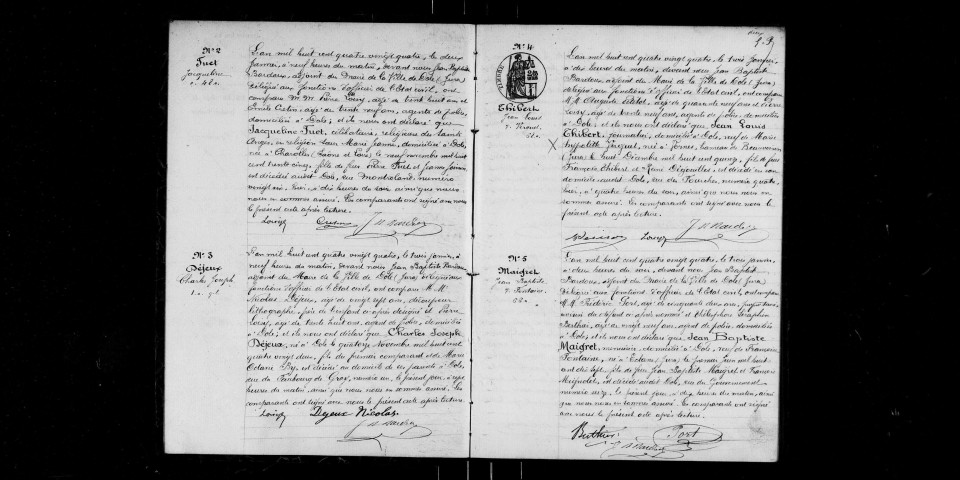 N° 2
Juet
Jacqueline
L'an mil huit cent quatre vingt quatre, le deux
Janvier, à neuf heures du matin, devant nous Jean Baptiste
Bardoux, adjoint du Maire de la Ville de Dole (Jura)
délégué aux fonctions d'officier de l'Etat civil, ont
comparu M.M. Pierre Louvy, agé de trente huit ans et
agé de trente neuf ans, agents de police,
domiciliés à Dole; et ils nous ont déclaré que
Jacqueline Juet, célibataire, religieuse du Saint
Ange, en religion Sœur Marie Jeanne, domiciliée à Dole,
née à Charolles (Saône et Loire) le neuf novembre mil huit
cent trente cinq, fille de feu Pierre Juet et Jeanne
est décédée audit Dole, rue Montroland, numéro
vingt six, hier, à dix heures du soir ainsi que nous
nous en sommes assuré. Les comparants ont signé avec nous
le présent acte après lecture.
N° 3
Déjeux
Charles Joseph
L'an mil huit cent quatre vingt quatre, le trois janvier, à
neuf heures du matin, devant nous Jean Baptiste Bardoux
adjoint du Maire de la Ville de Dole (Jura) délégué aux
fonctions d'officier de l'Etat civil, ont comparu M.M.
Nicolas Déjeux, agé de vingt sept ans, découpeur
lithographe, père de l'enfant ci-après désigné et Pierre
Louvy, agé de trente huit ans, agent de police, domiciliés
à Dole; et ils nous ont déclaré que Charles Joseph
Déjeux, né à Dole le quatorze Novembre mil huit cent
quatre vingt deux, fils du premier comparant et de Marie
est décédé au domicile de ses parents à Dole,
rue du Faubourg de Gray, numéro un, le présent jour, à sept
heures du matin, ainsi que nous nous en sommes assuré. Les
comparants ont signé avec nous le présent acte après lecture.
Dejeux Nicolas
N° 4
Thibert
Jean Louis
L'an mil huit cent quatre vingt quatre, le trois Janvier,
à dix heures du matin, devant nous Jean Baptiste
Bardoux, adjoint du Maire de la Ville de Dole (Jura)
délégué aux fonctions d'officier de l'Etat civil, ont comparu
M.M. Auguste agé de quarante neuf ans et Pierre
Louvy, agé de trente neuf ans, agents de police, domiciliés
à Dole; et ils nous ont déclaré que Jean Louis
Thibert, journalier, domicilié à Dole, veuf de Marie
hameau de
(Jura) le huit Décembre mil huit cent quinze, fils de feu
François Thibert et est décédé en son
domicile audit Dole, rue numéro quatre,
hier, à quatre heures du soir, ainsi que nous nous en
sommes assuré. Les comparants ont signé avec nous le
présent acte après lecture.
N° 5
Maigret
Jean Baptiste
L'an mil huit cent quatre vingt quatre, le trois janvier,
à deux heures du soir, devant nous Jean Baptiste
Bardoux, adjoint du Maire de la Ville de Dole (Jura)
délégué aux fonctions d'officier de l'Etat civil, ont comparu
M.M. Frédéric Port, agé de cinquante deux ans,
voisin du défunt ci-après nommé et
Berthier, agé de vingt neuf ans, agent de police, domiciliés
à Dole; et ils nous ont déclaré que Jean Baptiste
Maigret, menuisier, domicilié à Dole, veuf de Françoise
Fontaine, né à (Jura) le premier Juin mil huit
cent dix sept, fils de feu Jean Baptiste Maigret et
est décédé audit Dole, rue du Gouvernement
numéro le présent jour, à dix heures du matin, ainsi
que nous nous en sommes assuré. Les comparants ont signé
avec nous le présent acte après lecture.
Port